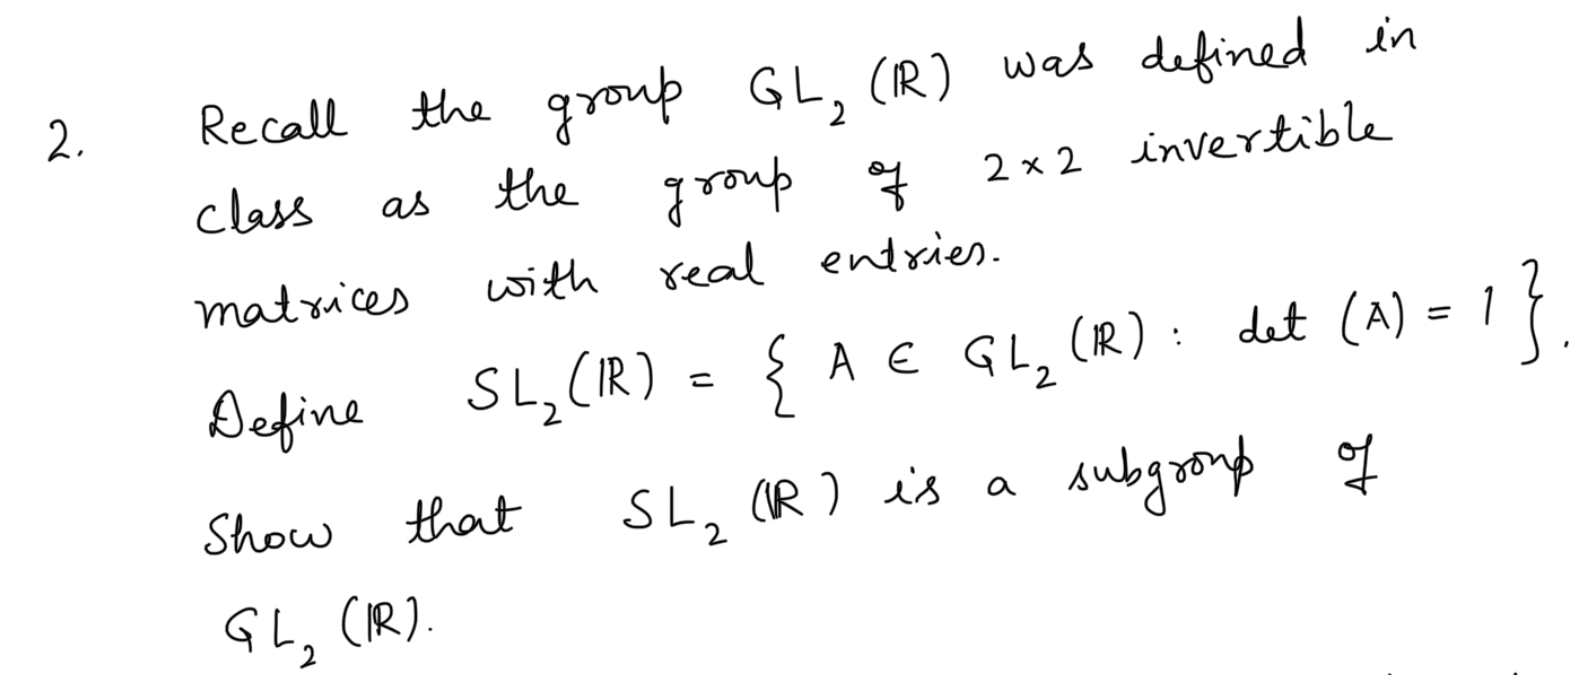 2. Recall the group GL₂ (ℝ) was defined in
class as the group of 2 × 2 invertible
matrices with real entries.
Define SL₂(ℝ) = { A ∈ GL₂(ℝ) : det (A) = 1 }.
Show that SL₂ (ℝ) is a subgroup of
GL₂ (ℝ).